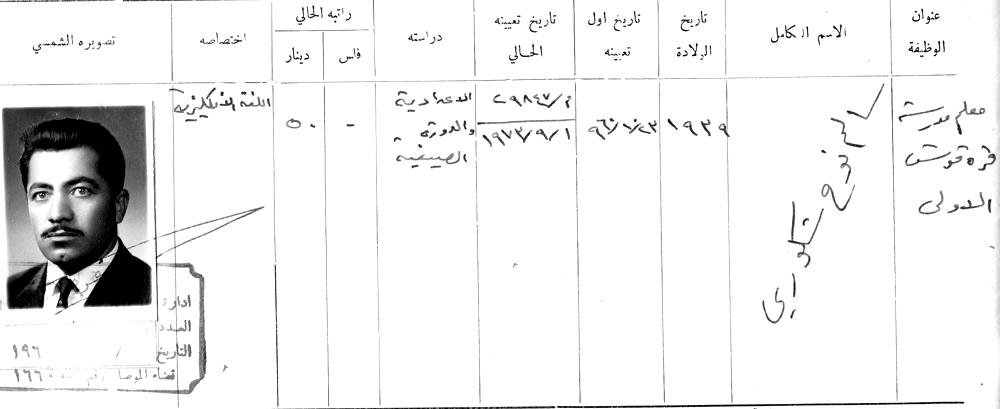 عنوان الوظيفة
الاسم الكامل
تاريخ الولادة
تاريخ اول تعيينه
تاريخ تعيينه الحالي
دراسته
راتبه الحالي
فلس
دينار
اختصاصه
تصويره الشمسي
معلم مدرسة
قره قوش
الاولى
١٩٣٩
٩٦٠/١٠/٢٣
٢٩٨٤٧/م
١٩٧٣/٩/١
الاعدادية
والدورة
الصيفية
-
٥٠
اللغة الانكليزية
ادارة
العدد
التاريخ / / ١٩٦
قضاء الموصل رقم ١٦٦